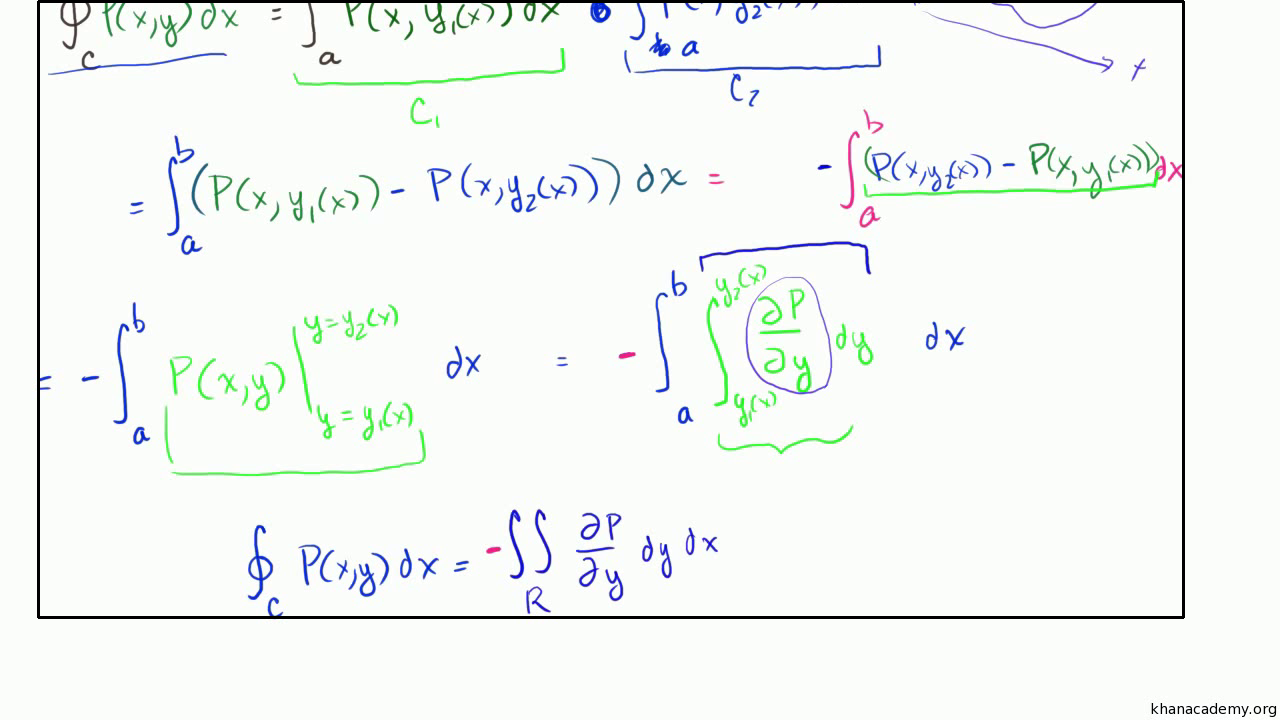 ∮_C P(x,y) dx = ∫_a P(x, y₁(x)) dx ∫_a
C₁ C₂ x
= ∫_a^b (P(x, y₁(x)) - P(x, y₂(x))) dx = - ∫_a^b (P(x, y₂(x)) - P(x, y₁(x))) dx
= - ∫_a^b P(x,y) |_{y=y₁(x)}^{y=y₂(x)} dx = - ∫_a^b ∫_{y₁(x)}^{y₂(x)} ∂P/∂y dy dx
∮_C P(x,y) dx = - ∬_R ∂P/∂y dy dx
khanacademy.org